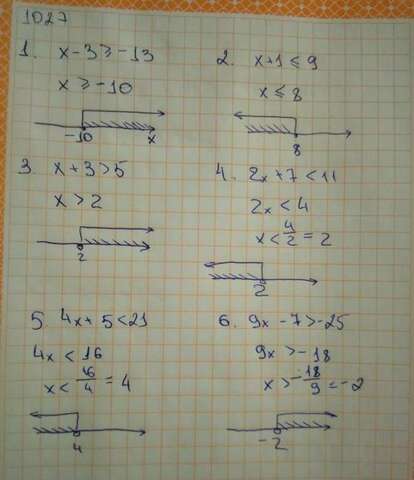 1027
1. x-3≥-13
x≥-10
-10 x
2. x+1≤9
x≤8
8
3. x+3>5
x>2
2
4. 2x+7<11
2x<4
x<4/2=2
2
5. 4x+5<21
4x<16
x<16/4=4
4
6. 9x-7>-25
9x>-18
x>-18/9=-2
-2